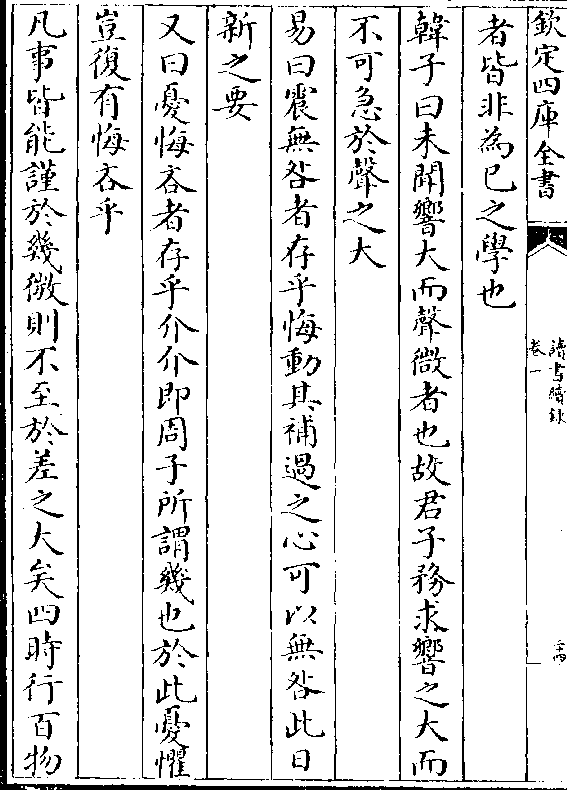 欽定四庫全書
讀書續録
卷一
二十四
者皆非為已之學也
韓子曰未聞響大而聲微者也故君子務求響之大而
不可急於聲之大
易曰震無咎者存乎悔動其補過之心可以無咎此日
新之要
又曰憂悔吝者存乎介介即周子所謂幾也於此憂懼
豈復有悔吝乎
凡事皆能謹於幾微則不至於差之大矣四時行百物